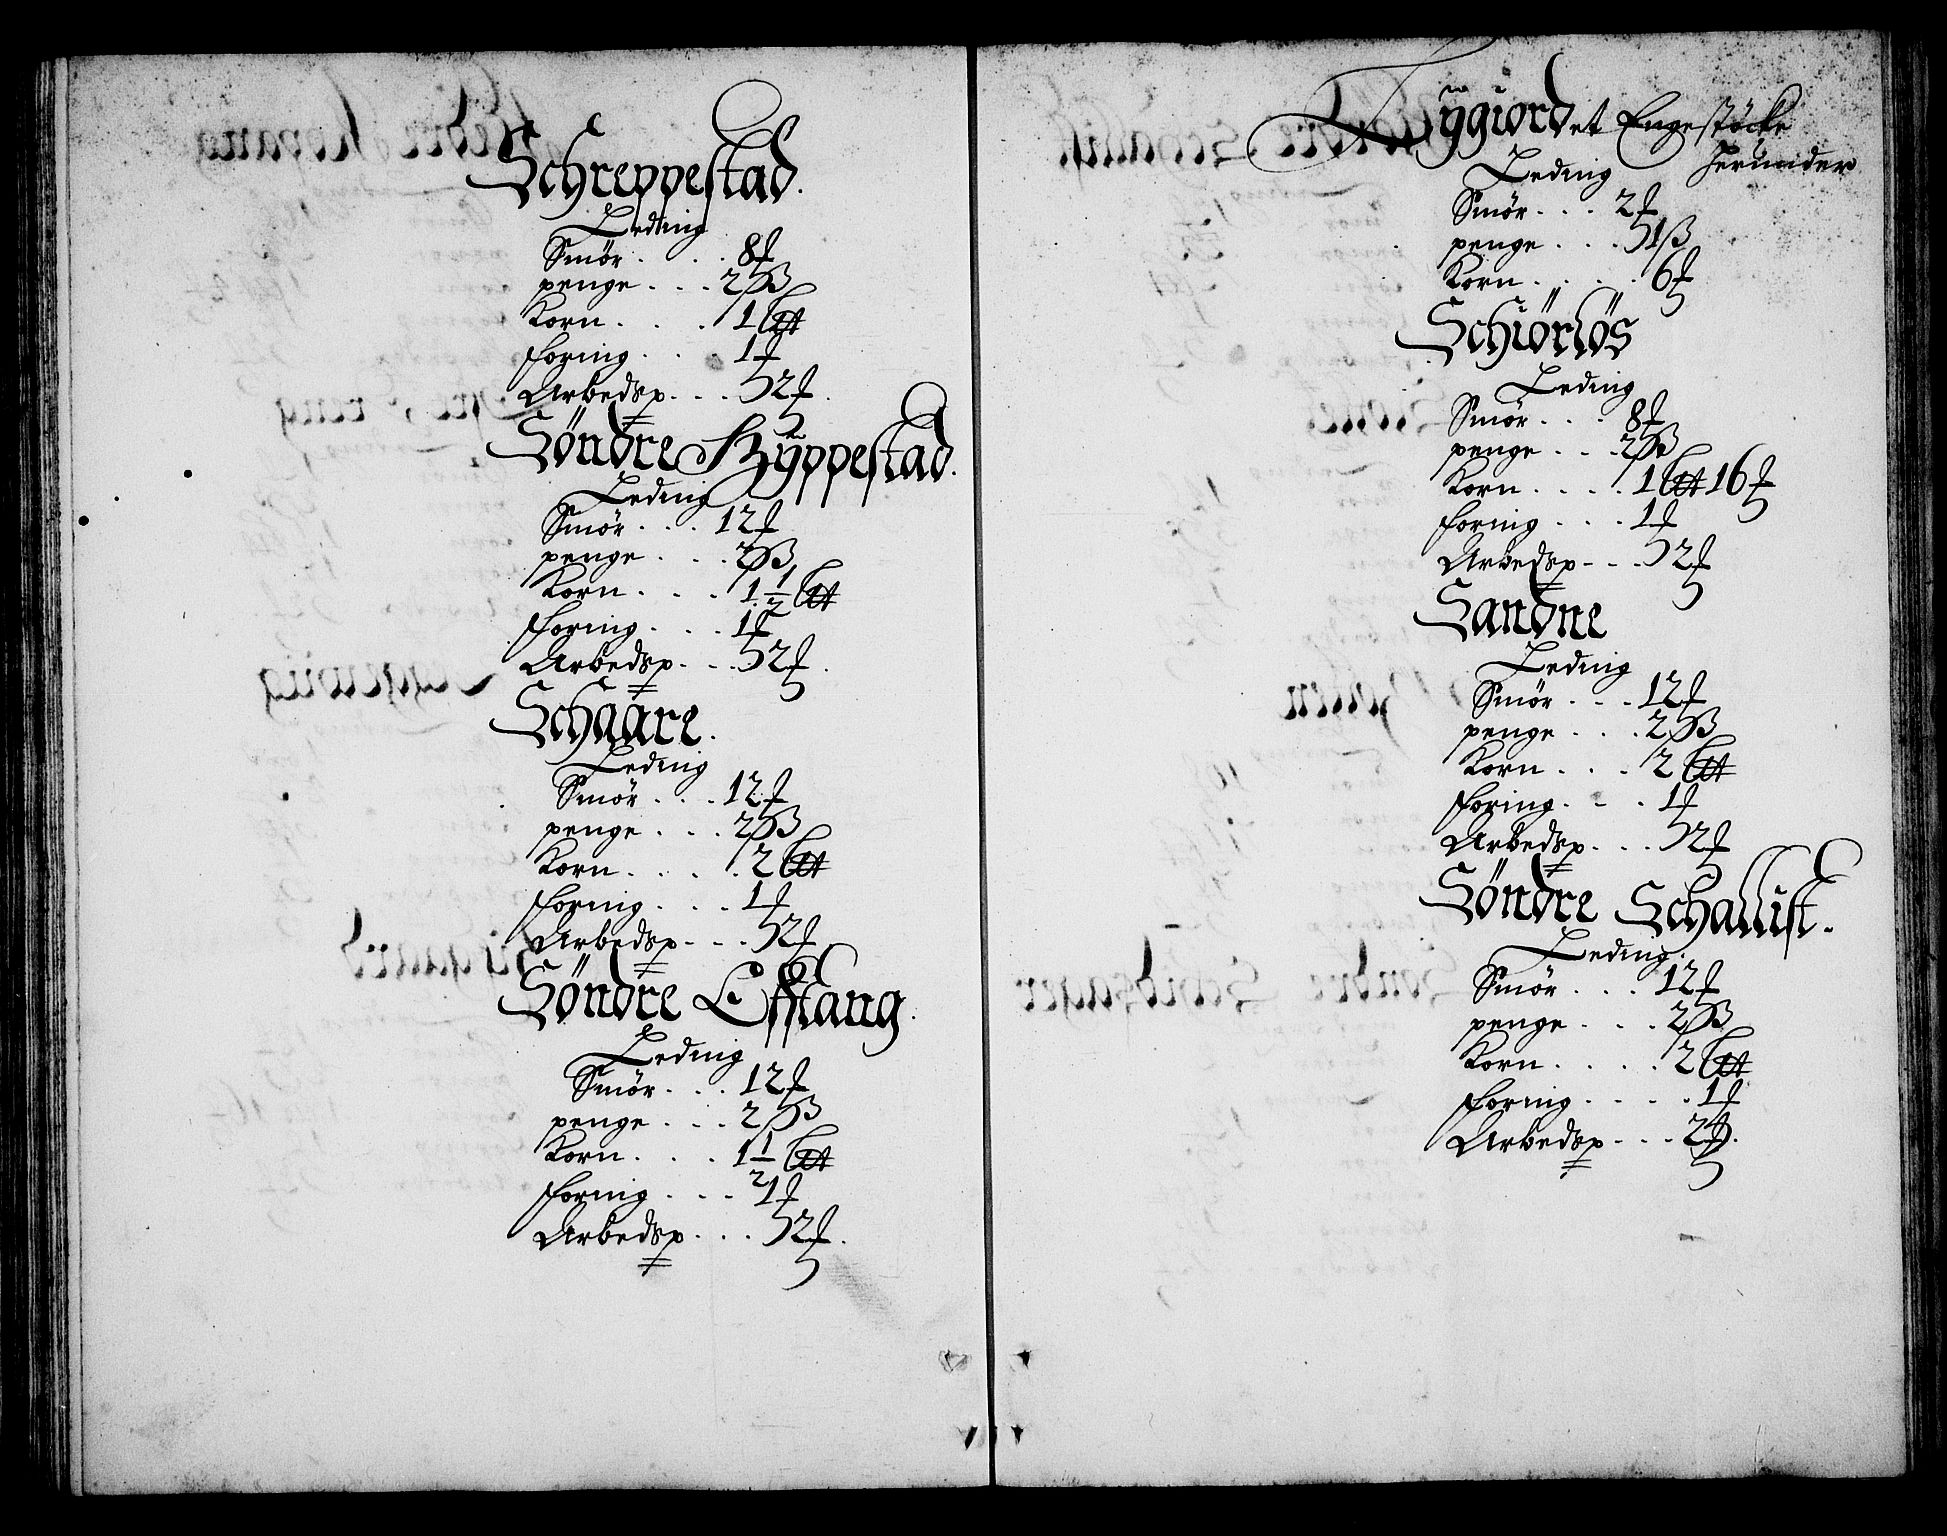 Schreppestad.
Leding
Smör . . . 8
penge . . . 2 ß
Korn . . . . 1
foring . . . 1
Arbedsp . . . 2
Söndre Hyppestad.
Leding
Smör . . . 12
penge . . . 2 ß
Korn . . . . 1 1/2
foring . . . 1
Arbedsp . . . 2
Schaare.
Leding
Smör . . . 12
penge . . . 2 ß
Korn . . . . 2
foring . . . 1
Arbedsp . . . 2
Söndre Efftang.
Leding
Smör . . . 12
penge . . . 2 ß
Korn . . . . 1 1/2
foring . . . 1
Arbedsp . . . 2
Tygiord et Engestöcke
Jerunder
Leding
Smör . . . 2
penge . . . 1 ß
Korn . . . . . 6
Schiörlös
Leding
Smör . . . 8
penge . . . 2 ß
Korn . . . . 1 16
foring . . . 1
Arbedsp . . . 2
Sandne
Leding
Smör . . . 12
penge . . . 2 ß
Korn . . . 2
foring . . . 1
Arbedsp . . . 2
Söndre Schallist.
Leding.
Smör . . . 12
penge . . . 2 ß
Korn . . . . . 2
foring . . . . . 1
Arbedsp . . . 2